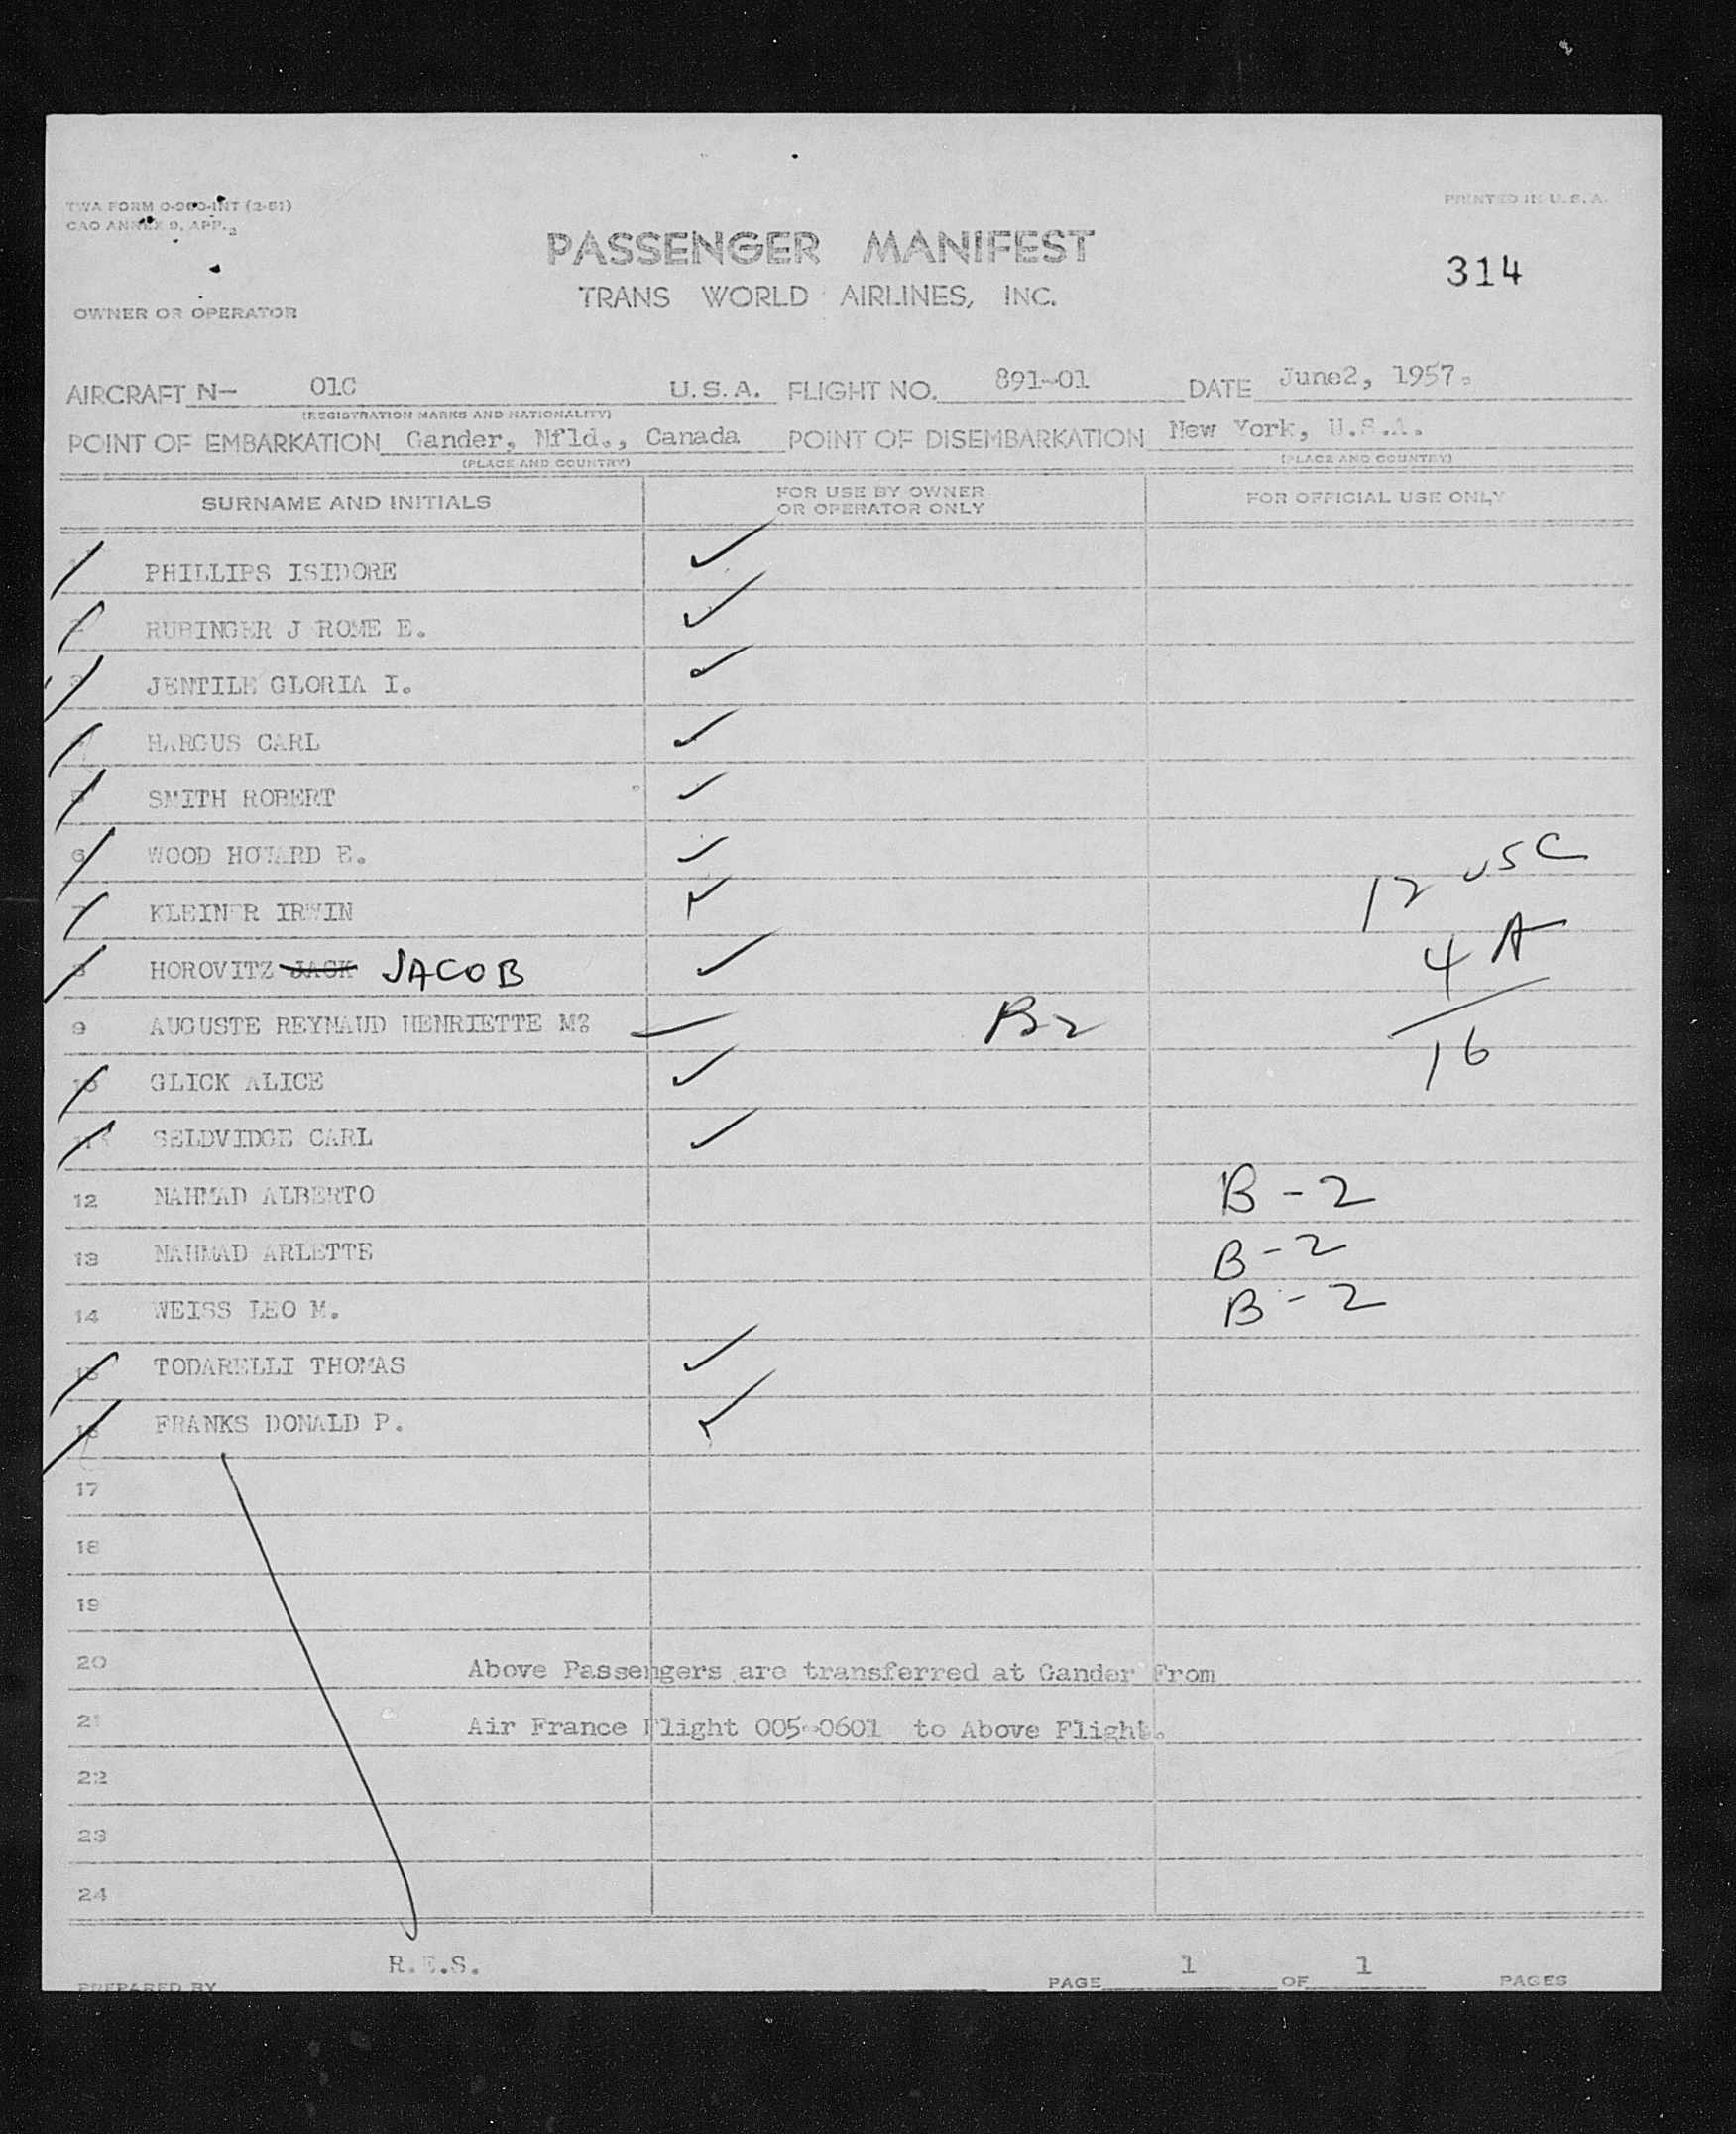 TWA FORM O-960-INT (2-51)
PRINTED IN U.S.A.
CAO ANNEX 9, APP. 2
PASSENGER MANIFEST
314
TRANS WORLD AIRLINES, INC.
OWNER OR OPERATOR
AIRCRAFT N- 010 U.S.A. FLIGHT NO. 891-01 DATE June2, 1957.
(REGISTRATION MARKS AND NATIONALITY)
POINT OF EMBARKATION Gander, Nfld., Canada POINT OF DISEMBARKATION New York, U.S.A.
(PLACE AND COUNTRY) (PLACE AND COUNTRY)
SURNAME AND INITIALS FOR USE BY OWNER OR OPERATOR ONLY FOR OFFICIAL USE ONLY
PHILLIPS ISIDORE ✓
2 RUBINGER J ROME E. ✓
3 JENTILE GLORIA I. ✓
HARGUS CARL ✓
5 SMITH ROBERT ✓
6 WOOD HOWARD E. ✓ 12 USC
7 KLEINER IRWIN ✓
8 HOROVITZ JACK JACOB ✓ 4 A
9 AUGUSTE REYNAUD HENRIETTE M? B2 16
10 GLICK ALICE ✓
11 SELDVIDGE CARL ✓
12 NAHMAD ALBERTO B-2
13 NAHMAD ARLETTE B-2
14 WEISS LEO M. B-2
15 TODARELLI THOMAS ✓
16 FRANKS DONALD P. ✓
17
18
19
20 Above Passengers are transferred at Gander From
21 Air France Flight 005-0601 to Above Flight.
22
23
24
PREPARED BY R.E.S. PAGE 1 OF 1 PAGES